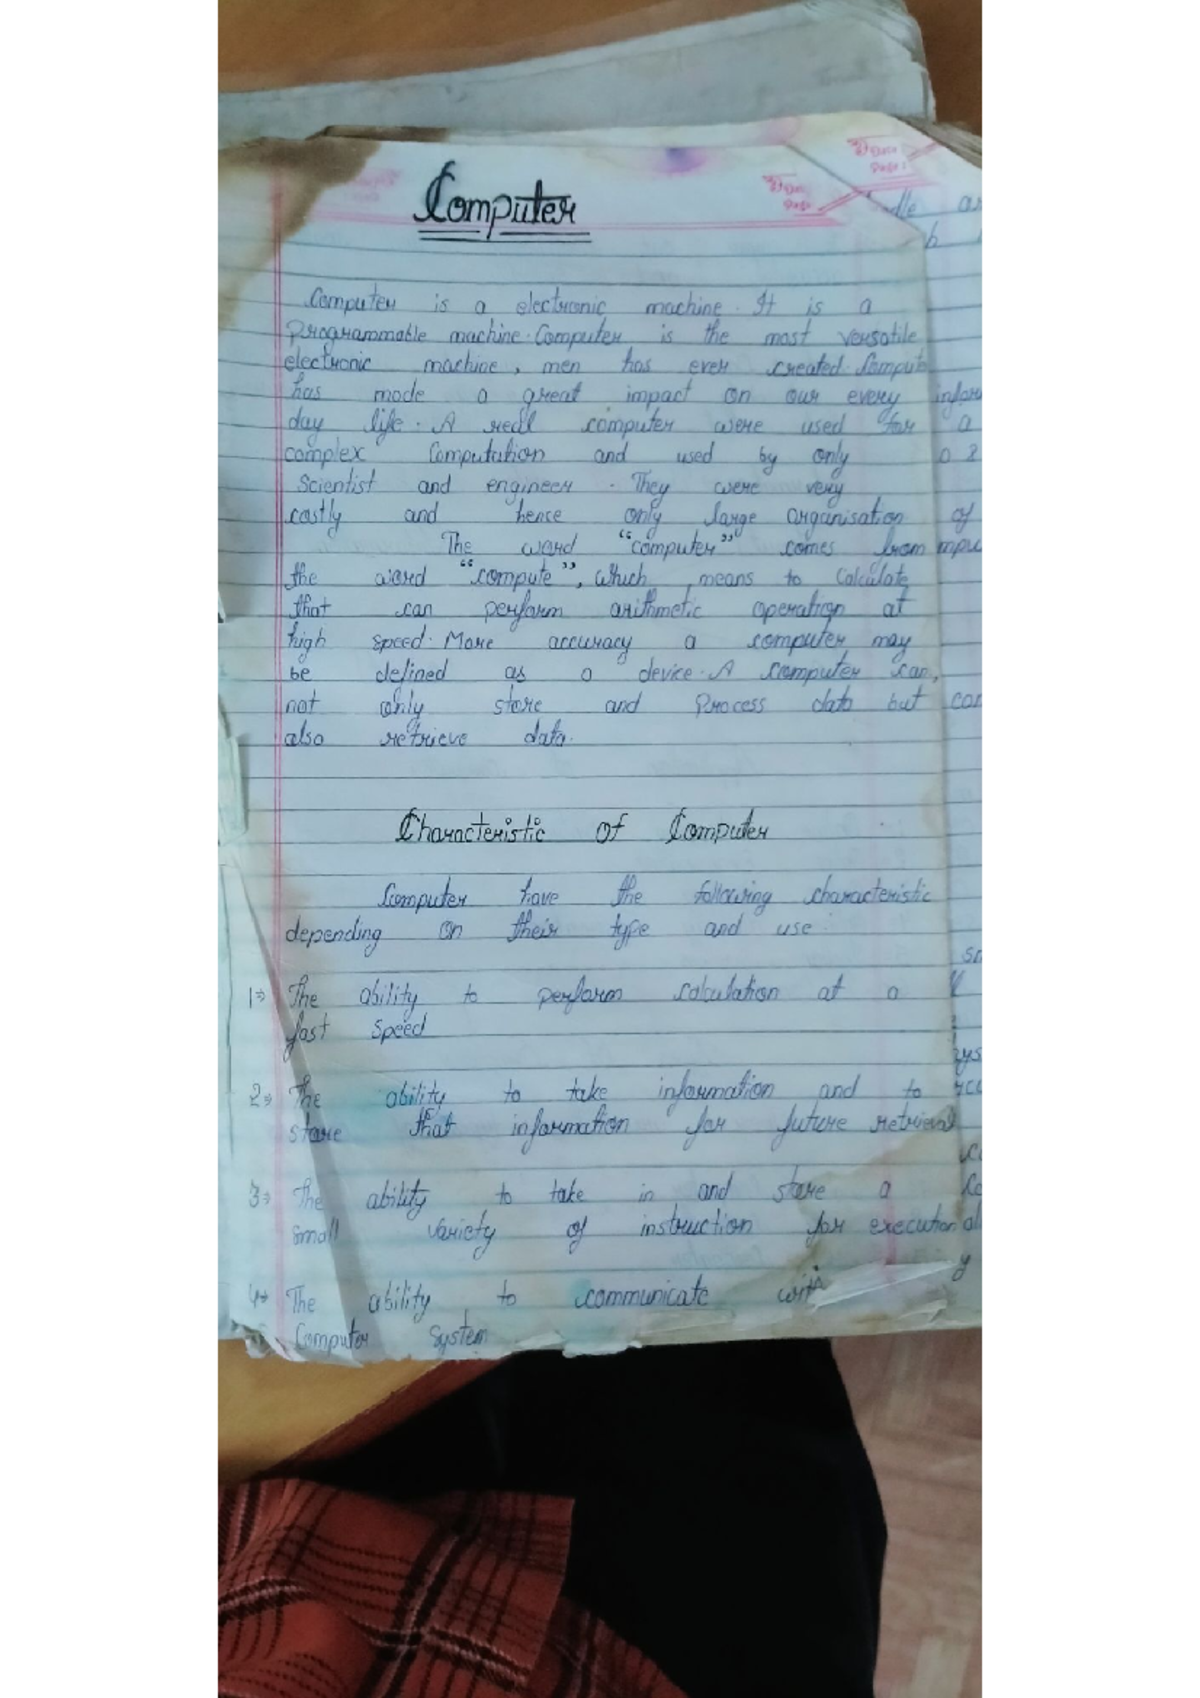 Computer
Computer is a electronic machine. It is a
programmable machine. Computer is the most versatile
electronic machine, men has ever created. Comput
has made a great impact on our every
day life. A real computer were used for a
complex Computation and used by only
Scientist and engineer. They were very
costly and hence only large organisation
The word "computer" comes from
the word "compute", which means to calculate
that can perform arithmetic operation at
high speed. More accuracy a computer may
be defined as a device. A computer can,
not only store and Process data but can
also retrieve data.
Characteristic of Computer
Computer have the following characteristic
depending on their type and use
1⇒ The ability to perform calculation at a
fast speed
2⇒ The ability to take information and to
store that information for future retrieval
3⇒ The ability to take in and store a
small variety of instruction for execution
4⇒ The ability to communicate with
Computer System